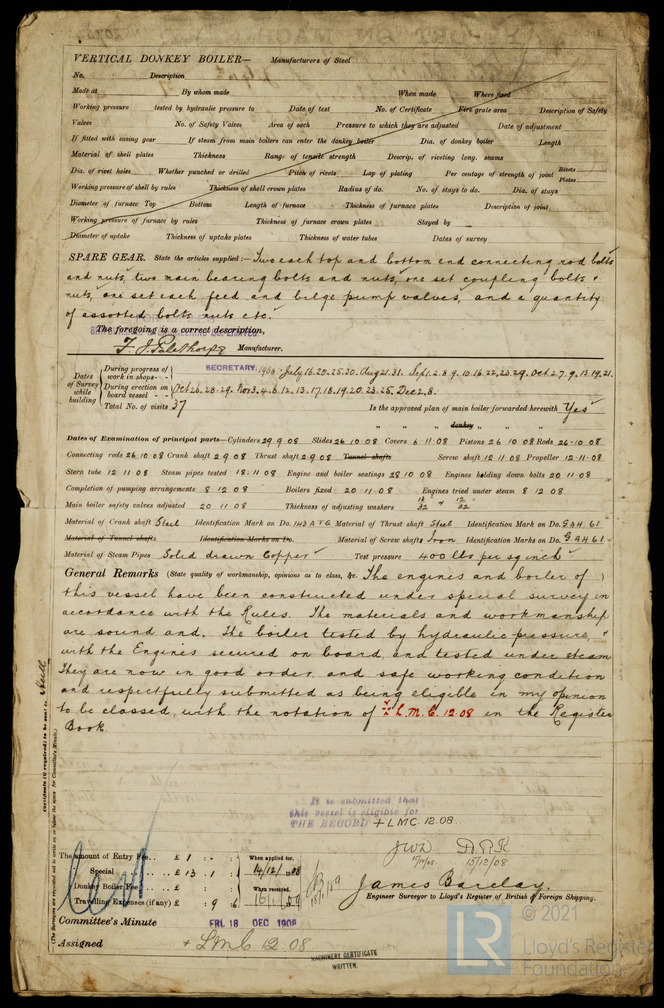 VERTICAL DONKEY BOILER— Manufacturers of Steel
No. Description
Made at By whom made When made Where fixed
Working pressure tested by hydraulic pressure to Date of test No. of Certificate Fire grate area Description of Safety
Valves No. of Safety Valves Area of each Pressure to which they are adjusted Date of adjustment
If fitted with easing gear If steam from main boilers can enter the donkey boiler Dia. of donkey boiler Length
Material of shell plates Thickness Range of tensile strength Descrip. of riveting long. seams
Dia. of rivet holes Whether punched or drilled Pitch of rivets Lap of plating Per centage of strength of joint Rivets Plates
Working pressure of shell by rules Thickness of shell crown plates Radius of do. No. of stays to do. Dia. of stays
Diameter of furnace Top Bottom Length of furnace Thickness of furnace plates Description of joint
Working pressure of furnace by rules Thickness of furnace crown plates Stayed by
Diameter of uptake Thickness of uptake plates Thickness of water tubes Dates of survey
SPARE GEAR. State the articles supplied:— Two each top and bottom end connecting rod bolts
and nuts, two main bearing bolts and nuts, one set coupling bolts +
nuts, one set each feed and bilge pump valves, and a quantity
of assorted bolts nuts etc.
The foregoing is a correct description,
F. J. Palethorpe Manufacturer.
SECRETARY.
Dates of Survey while building
During progress of work in shops - - 1908 July 16. 20. 25. 30. Aug 21. 31. Sept. 2. 8. 9. 10. 16. 22. 23. 29. Oct. 2. 7. 9. 13. 19. 21.
During erection on board vessel - - Oct 26. 28. 29. Nov 3. 4. 6. 12. 13. 17. 18. 19. 20. 23. 25. Dec 2. 8.
Total No. of visits 37 Is the approved plan of main boiler forwarded herewith Yes
" " donkey " " "
Dates of Examination of principal parts—Cylinders 29 9 08 Slides 26 10 08 Covers 6 11 08 Pistons 26 10 08 Rods 26 10 08
Connecting rods 26 10 08 Crank shaft 2 9 08 Thrust shaft 2 9 08 Tunnel shafts Screw shaft 12 11 08 Propeller 12 11 08
Stern tube 12 11 08 Steam pipes tested 18 11 08 Engine and boiler seatings 28 10 08 Engines holding down bolts 20 11 08
Completion of pumping arrangements 8 12 08 Boilers fixed 20 11 08 Engines tried under steam 8 12 08
Main boiler safety valves adjusted 20 11 08 Thickness of adjusting washers
Material of Crank shaft Steel Identification Mark on Do. Material of Thrust shaft Steel Identification Mark on Do. GAH 61
Material of Tunnel shafts Identification Marks on Do. Material of Screw shafts Iron Identification Marks on Do. GAH 61
Material of Steam Pipes Solid drawn Copper Test pressure 400 lbs per sq inch
General Remarks (State quality of workmanship, opinions as to class, &c. The engines and boiler of
this vessel have been constructed under special survey in
accordance with the Rules. The materials and workmanship
are sound and. The boiler tested by hydraulic pressure, +
with the Engines secured on board, and tested under steam
They are now in good order, and safe working condition
and respectfully submitted as being eligible in my opinion
to be classed, with the notation of + L.M.C. 12.08 in the Register
Book.
It is submitted that
this vessel is eligible for
THE RECORD + LMC 12.08.
15/12/08
The amount of Entry Fee.. £ 1 : - : When applied for,
Special .. .. £ 13 : 1 : 14/12/1908
Donkey Boiler Fee .. .. £ : : When received,
Travelling Expenses (if any) £ : 9 : 6 16/1/09
James Barclay.
Engineer Surveyor to Lloyd's Register of British & Foreign Shipping.
Committee's Minute FRI. 18 DEC 1908
Assigned + LMC 12.08.
MACHINERY CERTIFICATE
WRITTEN.
Certificate (if required) to be sent to
(The Surveyors are requested not to write on or below the space for Committee's Minute.)
© 2021
LR
Lloyd's Register
Foundation